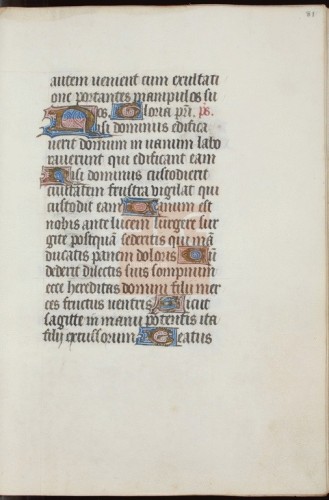 81
autem venient cum exultati
one portantes manipulos su
os. Gloria pri. ps.
Nisi dominus edifica
verit domum in vanum labo
raverunt qui edificant eam
Nisi dominus custodierit
civitatem frustra vigilat qui
custodit eam Vanum est
nobis ante lucem surgere sur
gite postquã sederitis qui mã
ducatis panem doloris Cũ
dederit dilectis suis sompnum
ecce hereditas domini filii mer
ces fructus ventris Sicut
sagitte in manu potentis ita
filij excussorum Beatus